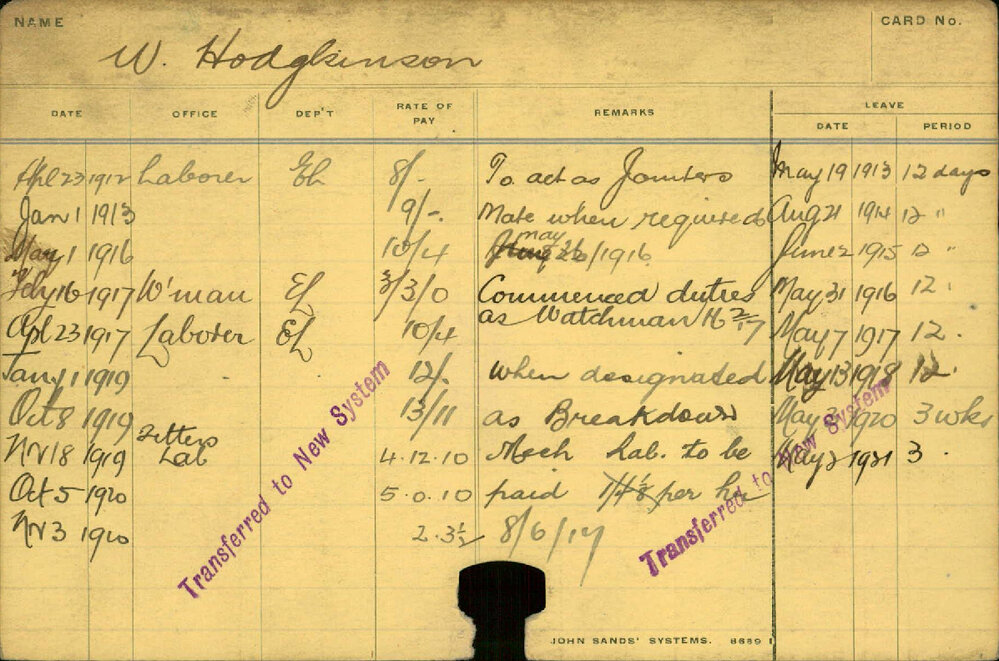 NAME
CARD No.
W. Hodgkinson
DATE OFFICE DEP'T RATE OF PAY REMARKS LEAVE
DATE PERIOD
Apl 23 1912 Laborer EL 8/- To act as Jointers May 19 1913 12 days
Jan 1 1913 9/-. Mate when required Aug 21 1914 12 "
May 1 1916 10/4 May 26/1916 June 2 1915 12 "
Feby 16 1917 W'man EL 3/3/0 Commenced duties May 31 1916 12.
as Watchman 16 2/17
Apl 23 1917 Laborer EL 10/4 May 7 1917 12.
Jany 1 1919 12/. when designated May 13 1918 12.
Oct 8 1919 13/11 as Breakdown May 1920 3 wks
Nv 18 1919 Fitters Lab 4.12.10 Mech Lab. to be May 2 1921 3.
Oct 5 1920 5.0.10 paid per hr
Nv 3 1920 2.3½ 8/6/17
Transferred to New System
Transferred to New System
JOHN SANDS' SYSTEMS. 8689